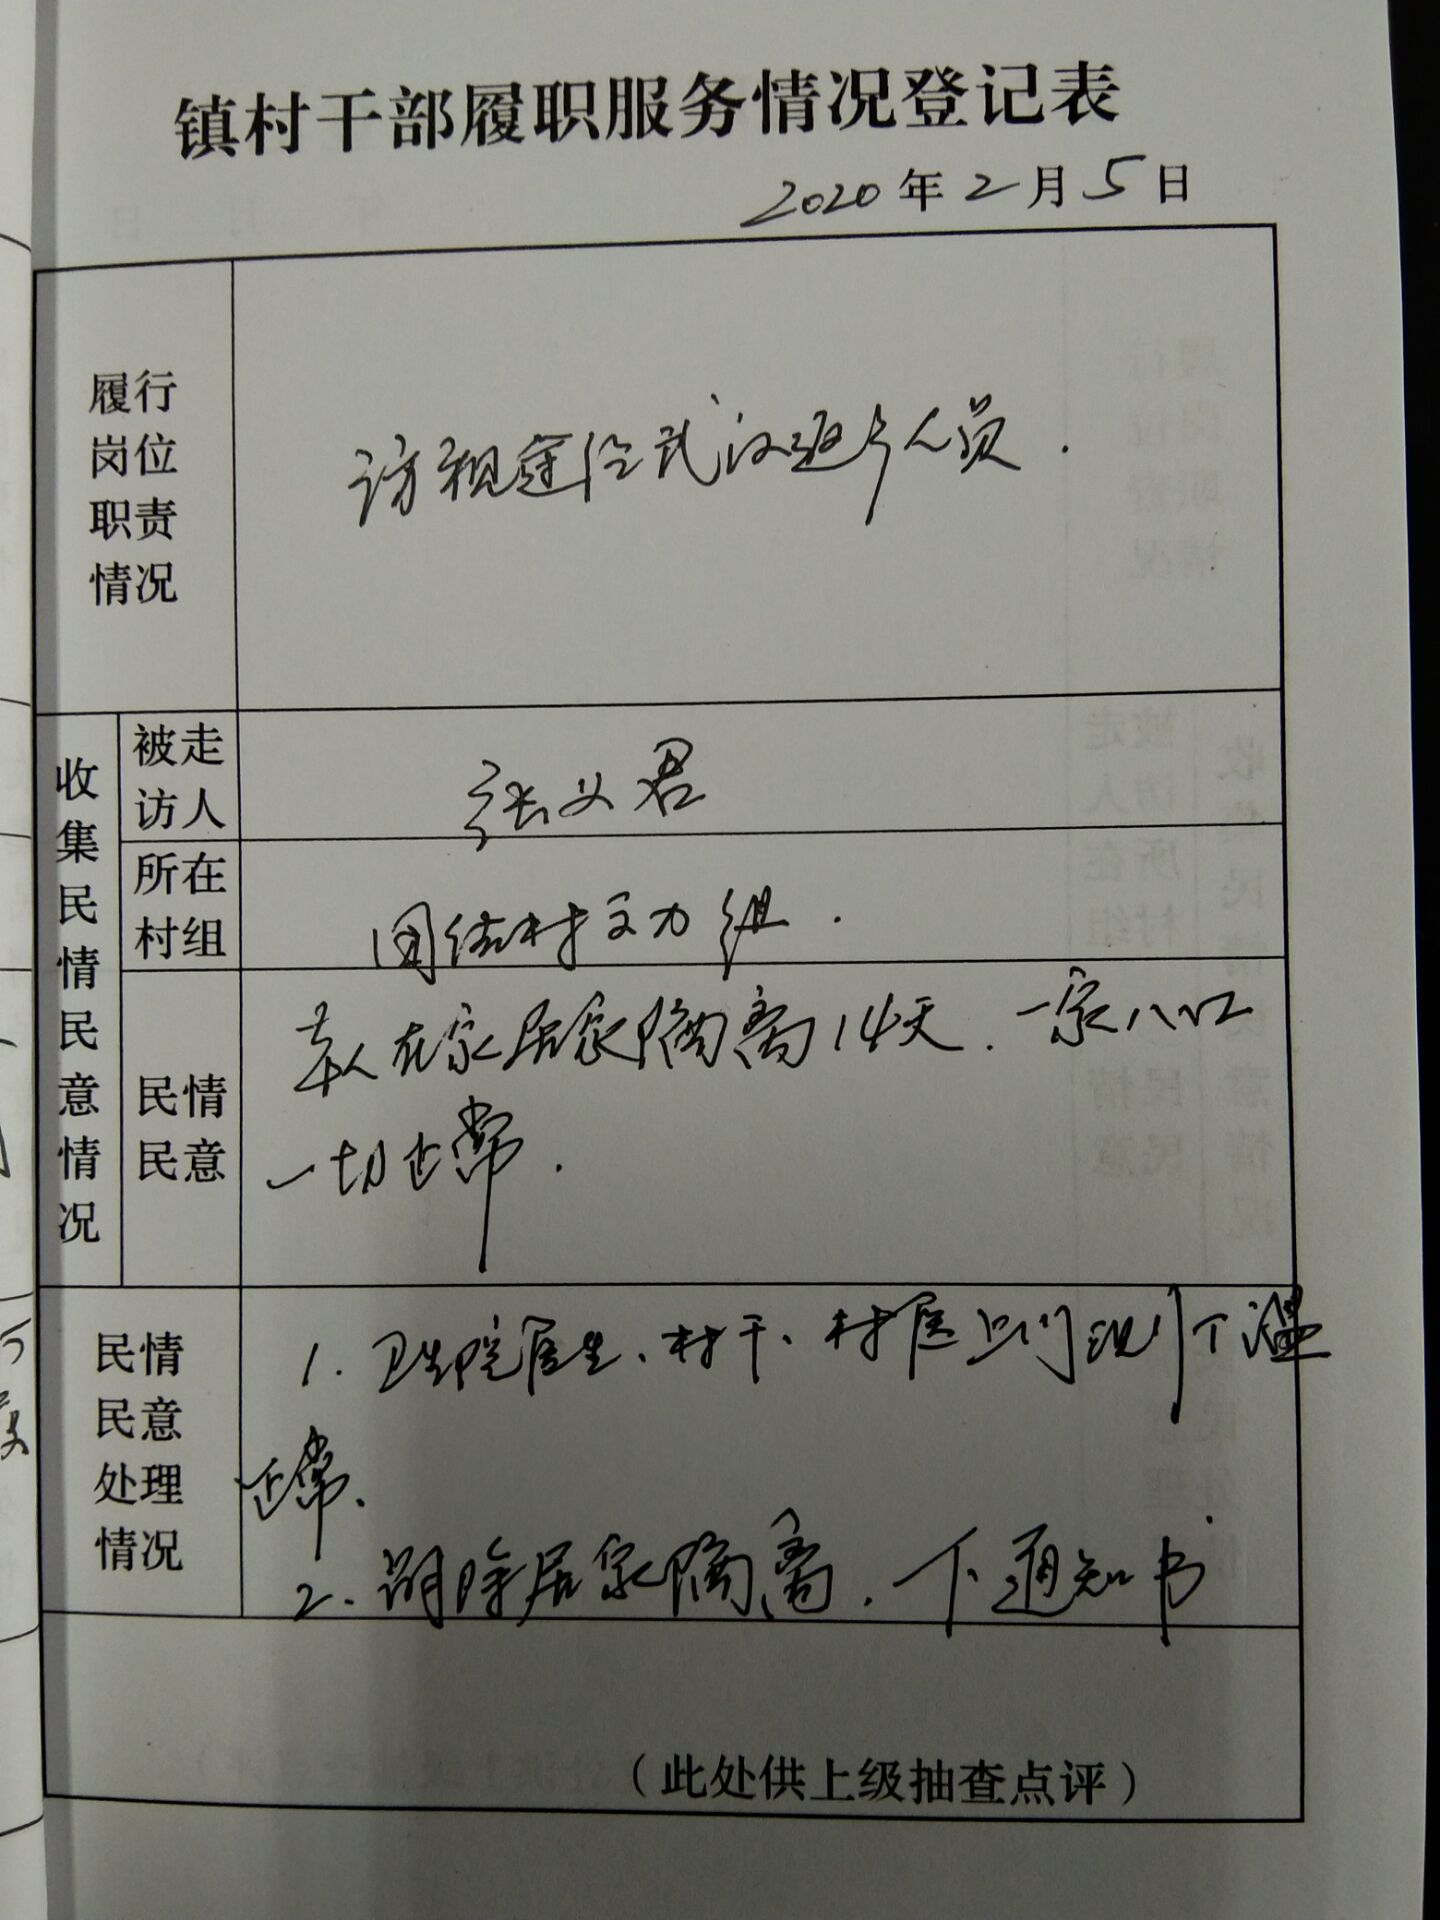 镇村干部履职服务情况登记表
2020年2月5日
履行
岗位
职责
情况
访视途经武汉返乡人员.
收集民情民意情况
被走
访人
张义君
所在
村组
团结村文力组.
民情
民意
本人在家居家隔离14天.一家八口
一切正常.
民情
民意
处理
情况
1.卫生院医生、村干、村医上门测体温
正常.
2.解除居家隔离.下通知书
(此处供上级抽查点评)